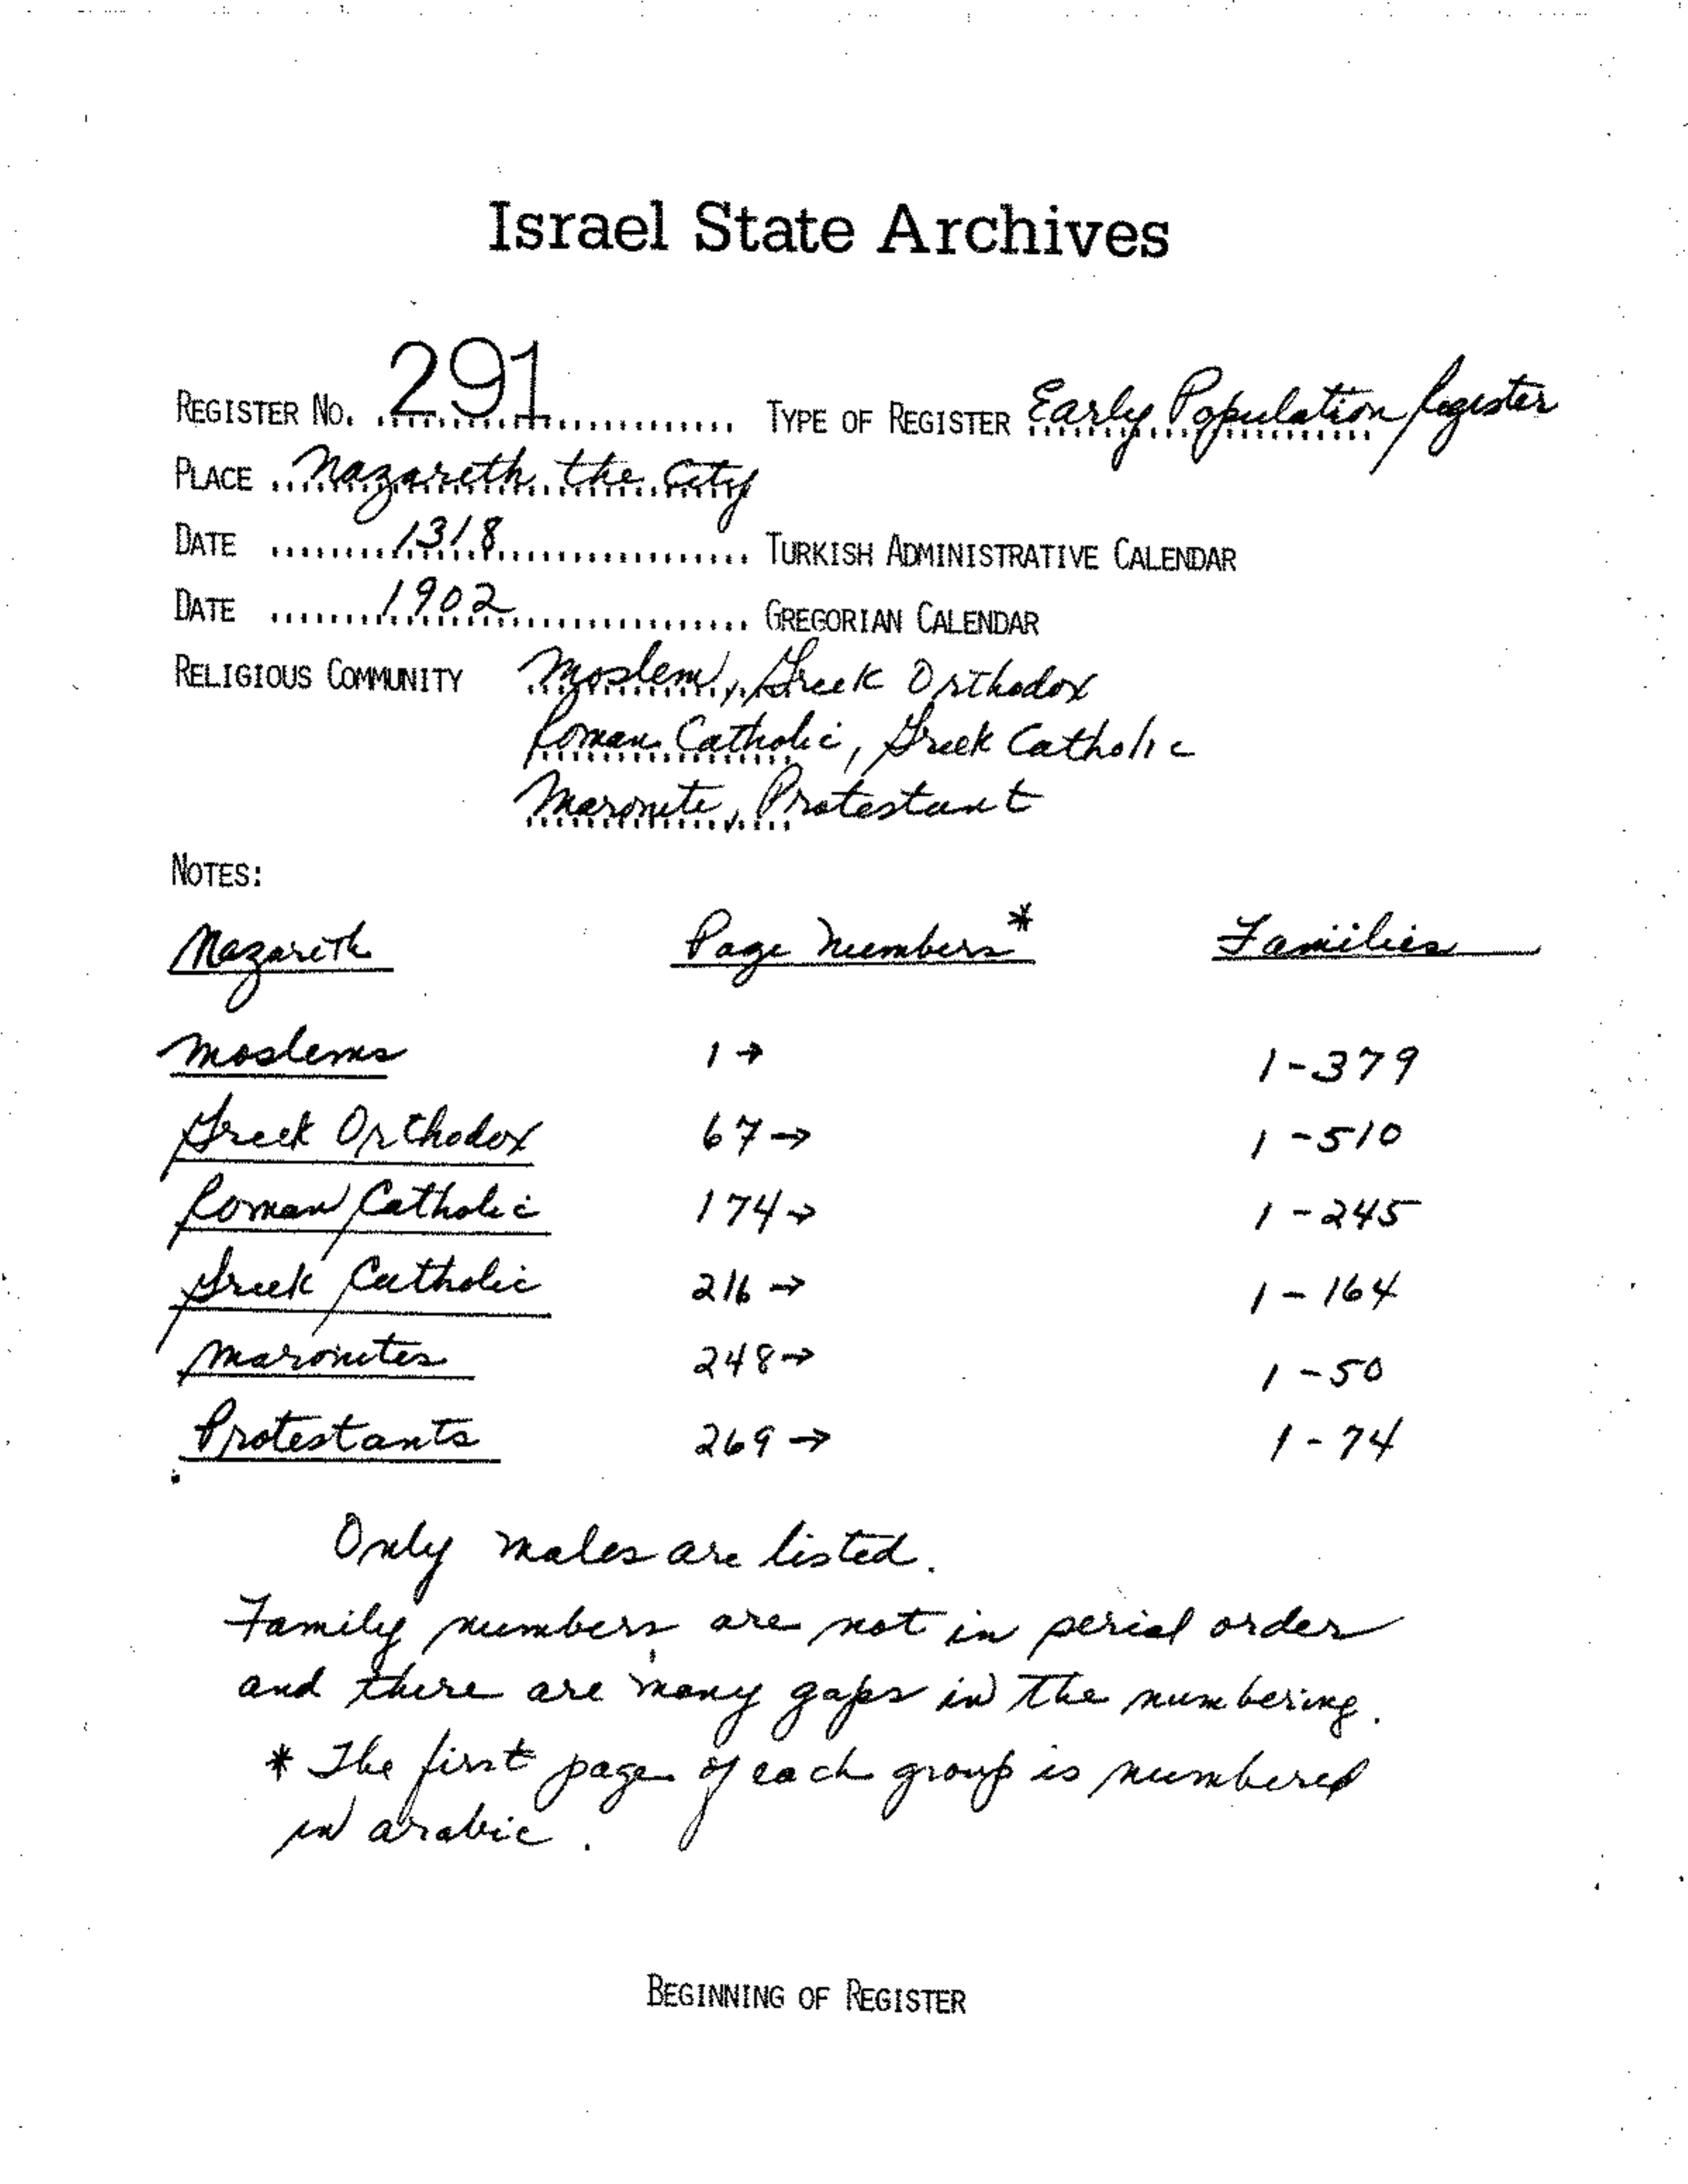 Israel State Archives
REGISTER NO. 291 TYPE OF REGISTER Early Population Register
PLACE Nazareth the City
DATE 1318 TURKISH ADMINISTRATIVE CALENDAR
DATE 1902 GREGORIAN CALENDAR
RELIGIOUS COMMUNITY Moslem, Greek Orthodox
Roman Catholic, Greek Catholic
Maronite, Protestant
NOTES:
Nazareth Page Numbers* Families
Moslems 1 → 1-379
Greek Orthodox 67 → 1-510
Roman Catholic 174 → 1-245
Greek Catholic 216 → 1-164
Maronites 248 → 1-50
Protestants 269 → 1-74
Only males are listed.
Family numbers are not in serial order
and there are many gaps in the numbering.
* The first page of each group is numbered
in arabic.
BEGINNING OF REGISTER